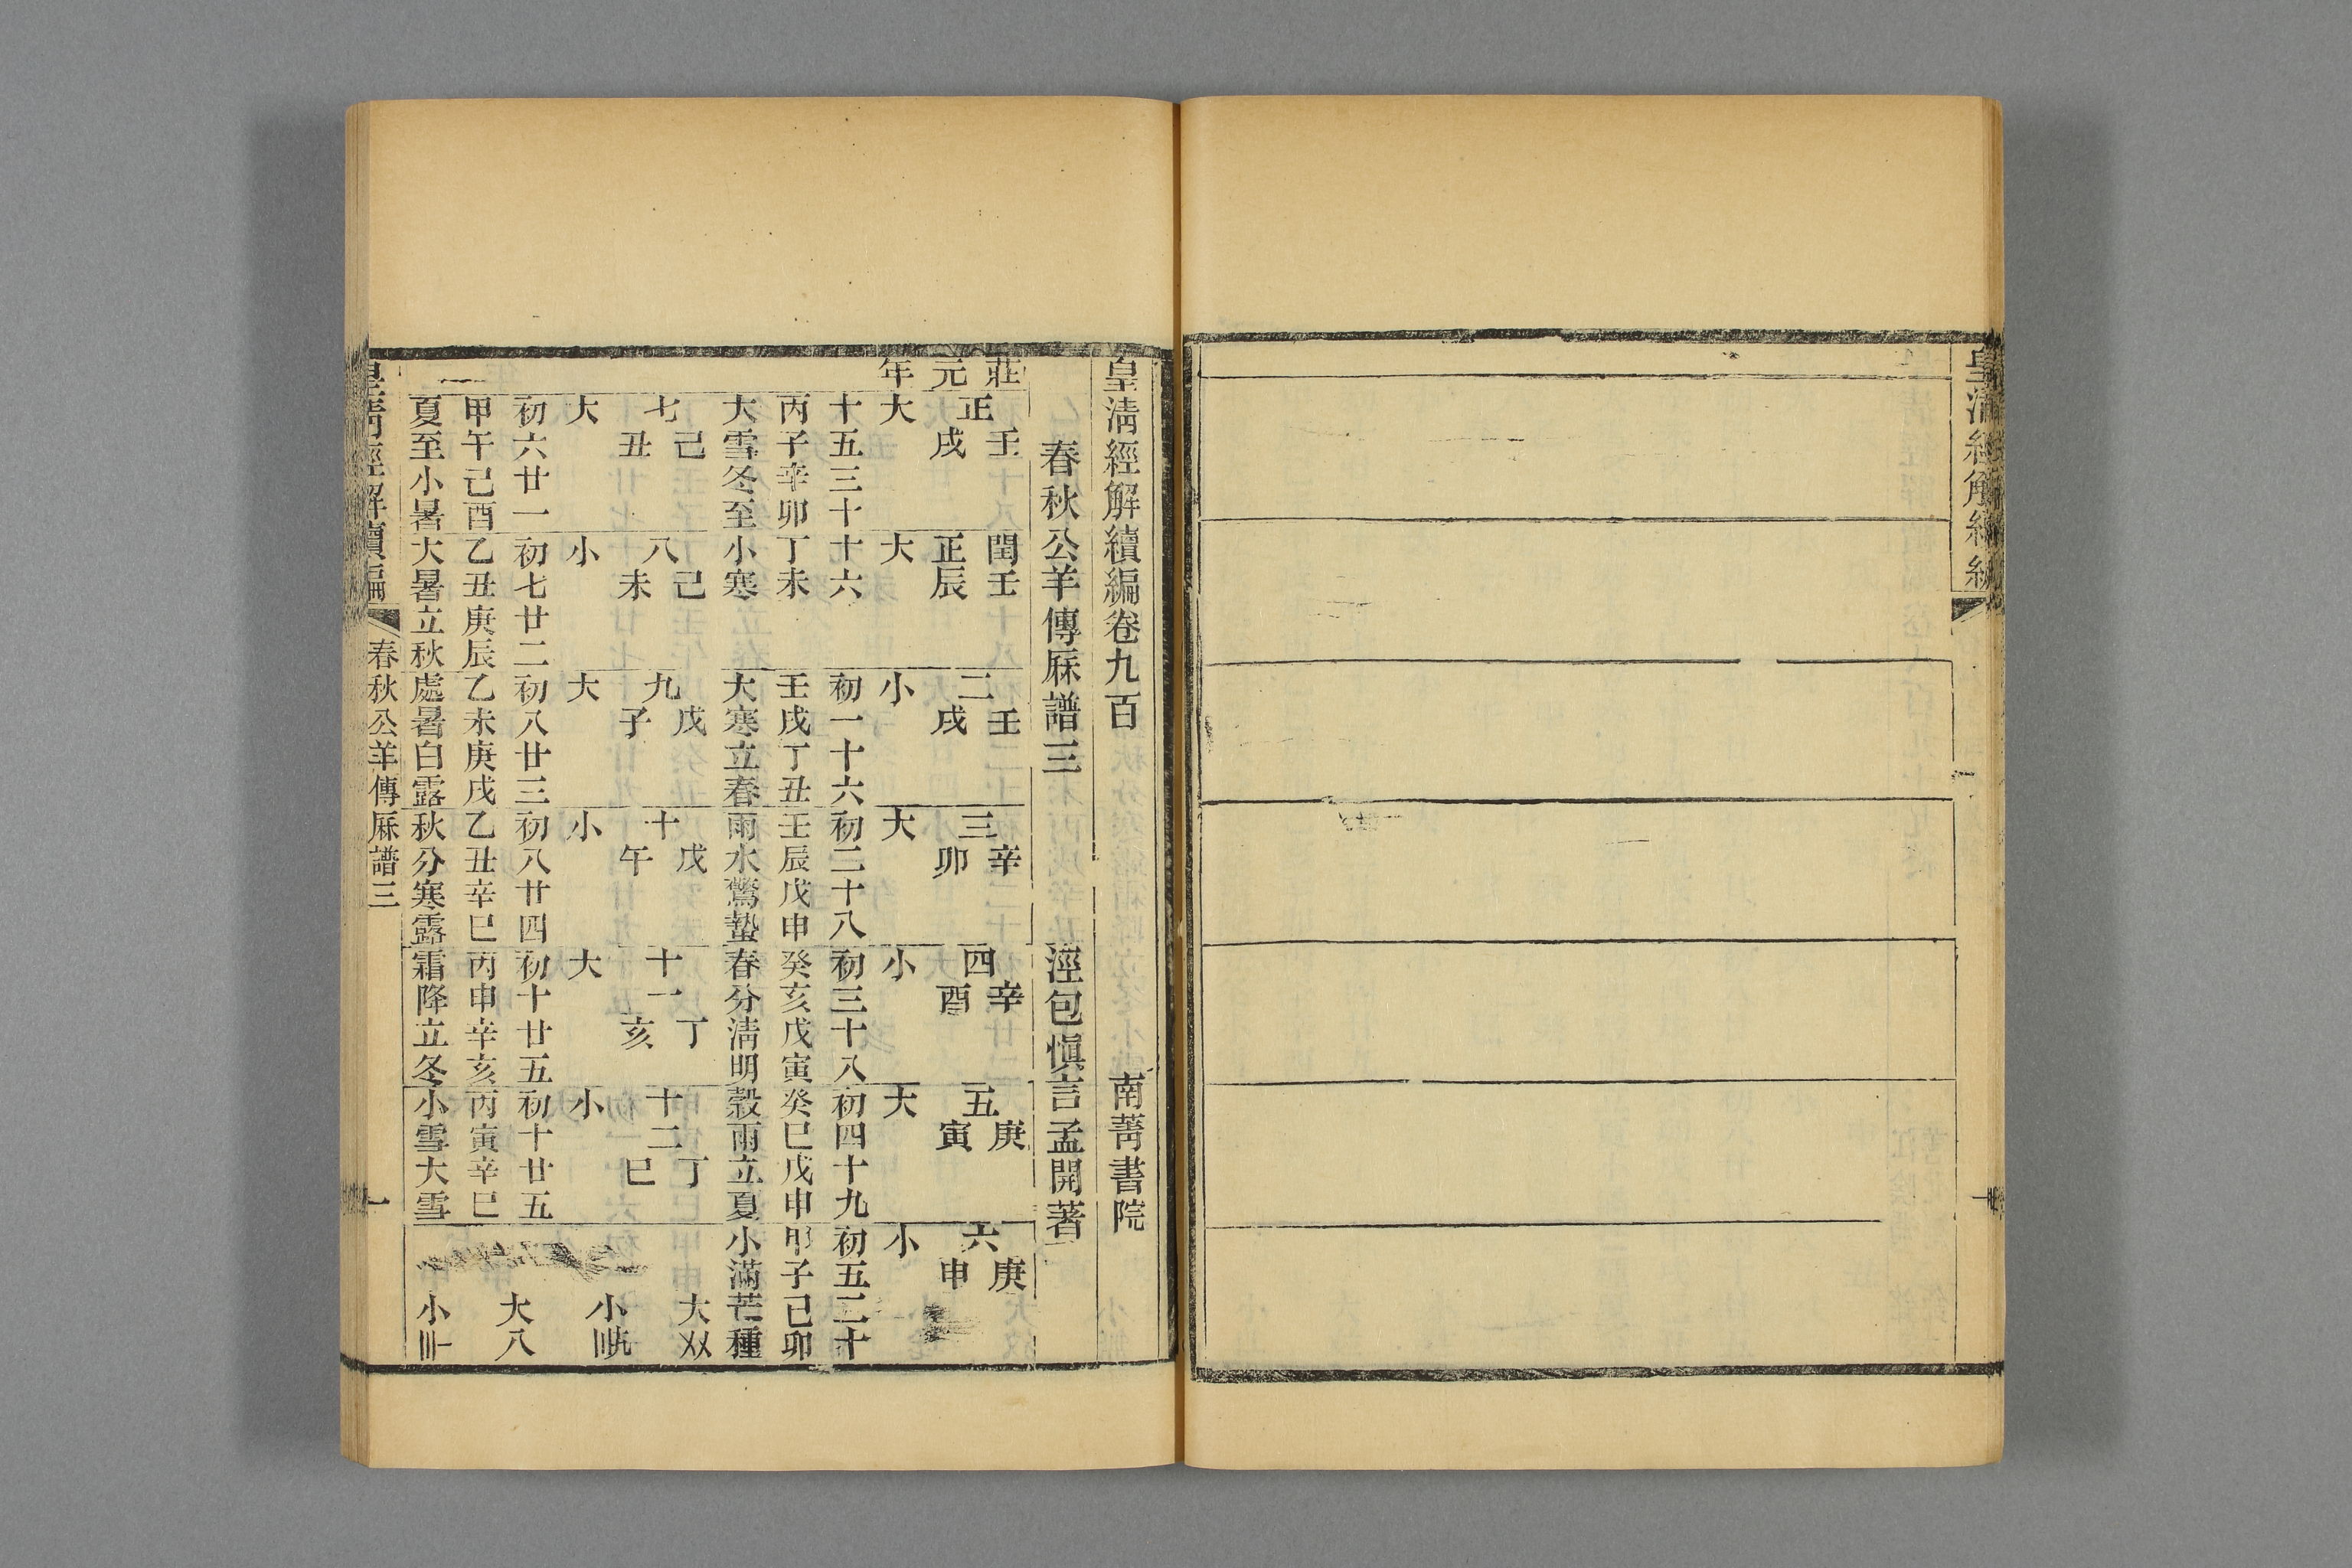 皇清經解續編
皇清經解續編卷九百
南菁書院
春秋公羊傳厤譜三
涇包慎言孟開著
莊元年
正 壬戌 大
十五三十
丙子辛卯
大雪冬至
閏正 壬辰 大
十六
丁未
小寒
二 壬戌 小
初一十六
壬戌丁丑
大寒立春
三 辛卯 大
初二十八
壬辰戊申
雨水驚蟄
四 辛酉 小
初三十八
癸亥戊寅
春分清明
五 庚寅 大
初四十九
癸巳戊申
穀雨立夏
六 庚申 小
初五二十
甲子己卯
小滿芒種
七 己丑 大
初六廿一
甲午己酉
夏至小暑
八 己未 小
初七廿二
乙丑庚辰
大暑立秋
九 戊子 大
初八廿三
乙未庚戌
處暑白露
十 戊午 小
初八廿四
乙丑辛巳
秋分寒露
十一 丁亥 大
初十廿五
丙申辛亥
霜降立冬
十二 丁巳 小
初十廿五
丙寅辛巳
小雪大雪
大〤〤
小
大八
小
皇清經解續編
春秋公羊傳厤譜三
一